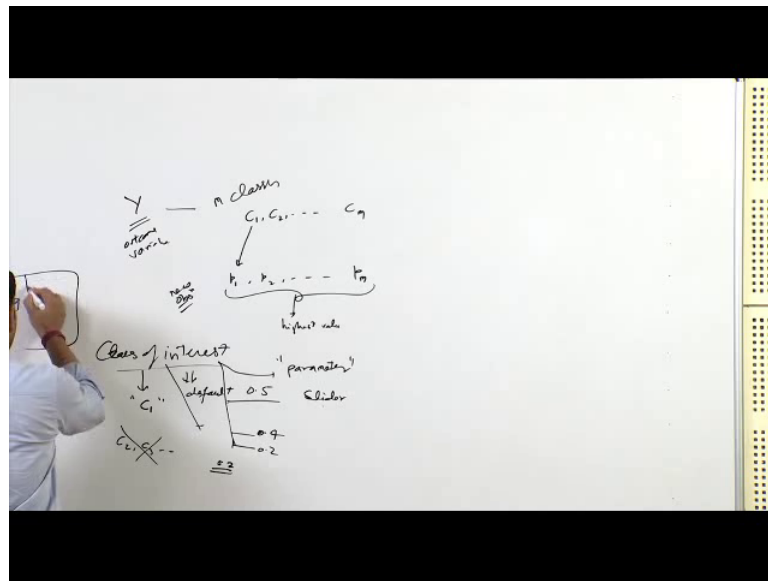 Y — m classes
C1, C2, - - - - Cm
outcome variable
new obs
p1, p2, - - - - pm
highest value
Class of interest
"parameter"
"C1" default 0.5 Slider
C2, C3 --
0.4
0.2